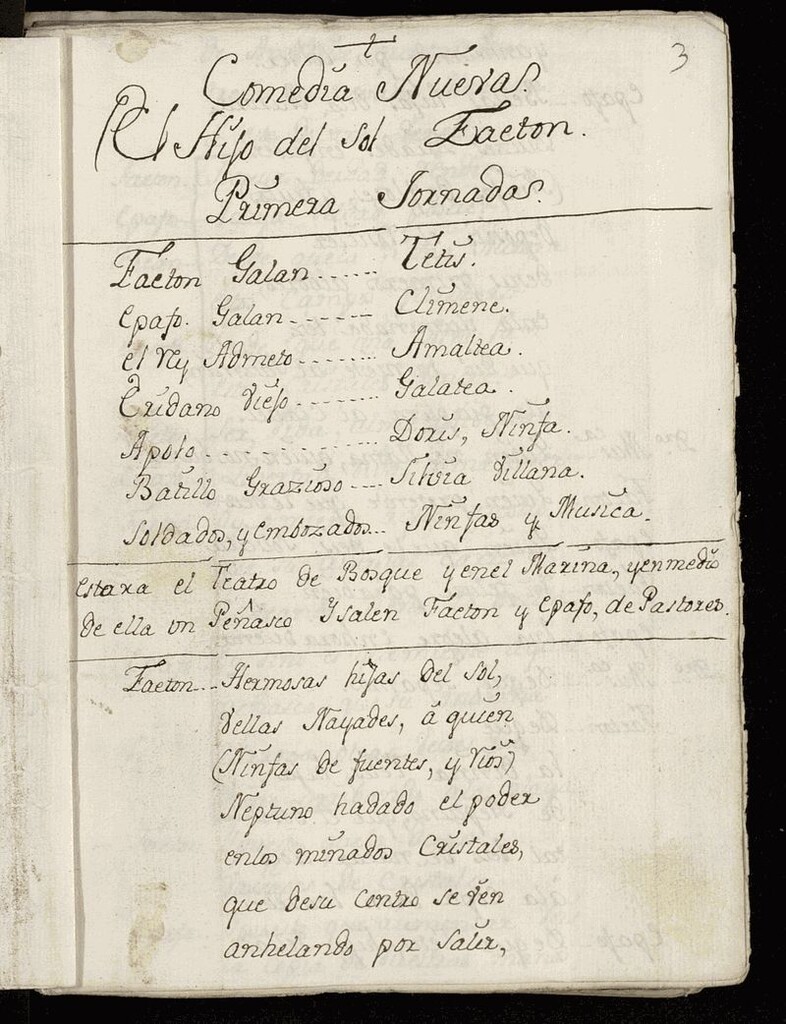 3
Comedia Nueva.
El Hijo del sol Faeton.
Primera Jornada.
Faeton Galan ...... Tetis.
Epafo. Galan ------- Climene.
el Rey Admeto -------- Amaltea.
Eridano Viejo -------- Galatea.
Apolo. ---------------- Doris, Ninfa.
Batillo Grazioso ---- Silvia Villana.
Soldados, y Embozados... Ninfas y Musica.
estara el Teatro de Bosque y enel Marina, y en medio
de ella un Peñasco Y salen Faeton y Epafo, de Pastores.
Faeton... Hermosas hijas del sol,
vellas Nayades, á quien
(Ninfas de fuentes, y Rios)
Neptuno hadado el poder
enlos minados Cristales,
que desu Centro se ven
anhelando por salir,